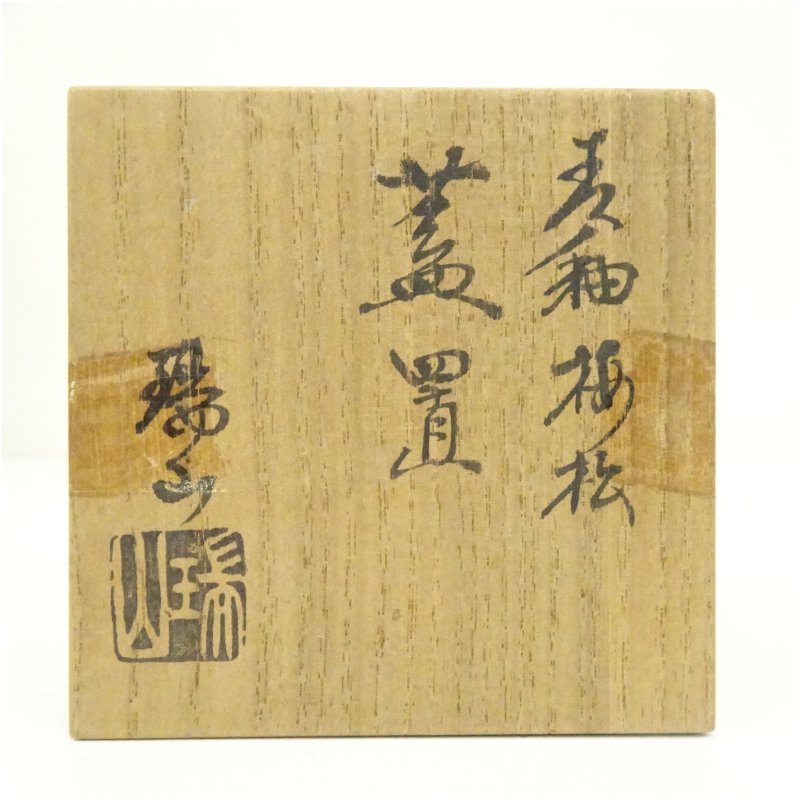 青釉梅松
蓋置
瑞山
瑞山